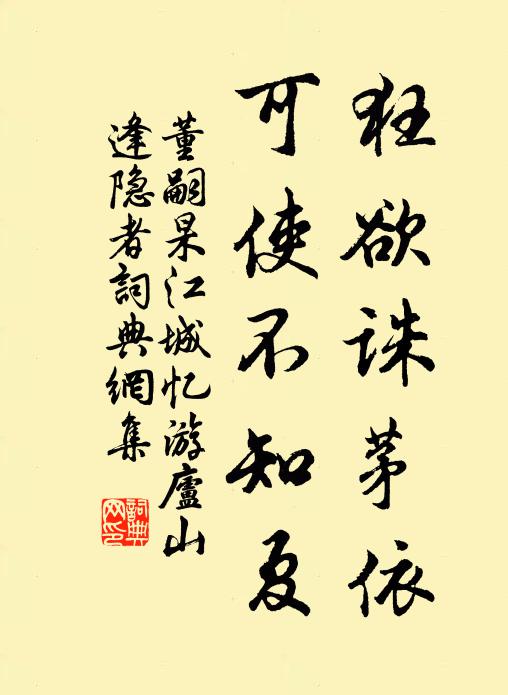 狂欲诛茅依
可使不知夏
董嗣杲江城忆游廬山
逢隐者詞典網集
詞典
网印